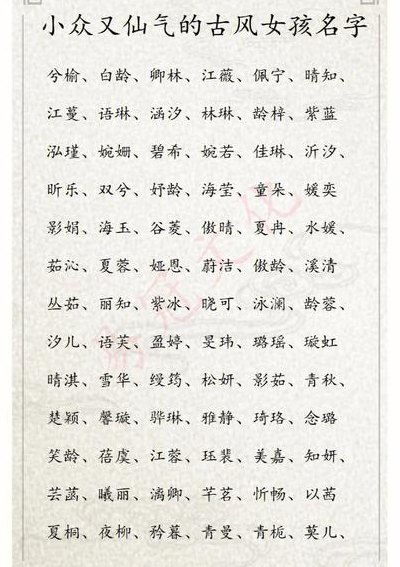 小众又仙气的古风女孩名字
兮榆、白龄、卿林、江薇、佩宁、晴知、
江蔓、语琳、涵汐、林琳、龄梓、紫蓝
泓瑾、婉姗、碧希、婉若、佳琳、沂汐、
昕乐、双兮、妤龄、海莹、童朵、媛奕
影娟、海玉、谷菱、傲晴、夏冉、水媛、
茹沁、夏蓉、娅恩、蔚洁、傲龄、溪清
丛茹、丽知、紫冰、晓可、泳澜、龄蓉、
汐儿、语芙、盈婷、旻玮、璐瑶、璇虹
晴淇、雪华、绶筠、松妍、影茹、青秋、
楚颖、馨璇、骅琳、雅静、琦珞、念璐
笑龄、蓓虞、江蓉、珏裴、美嘉、知妍、
芸菡、曦丽、漓卿、芊茗、忻畅、以茜
夏桐、夜柳、矜暮、青曼、青栀、莫儿、